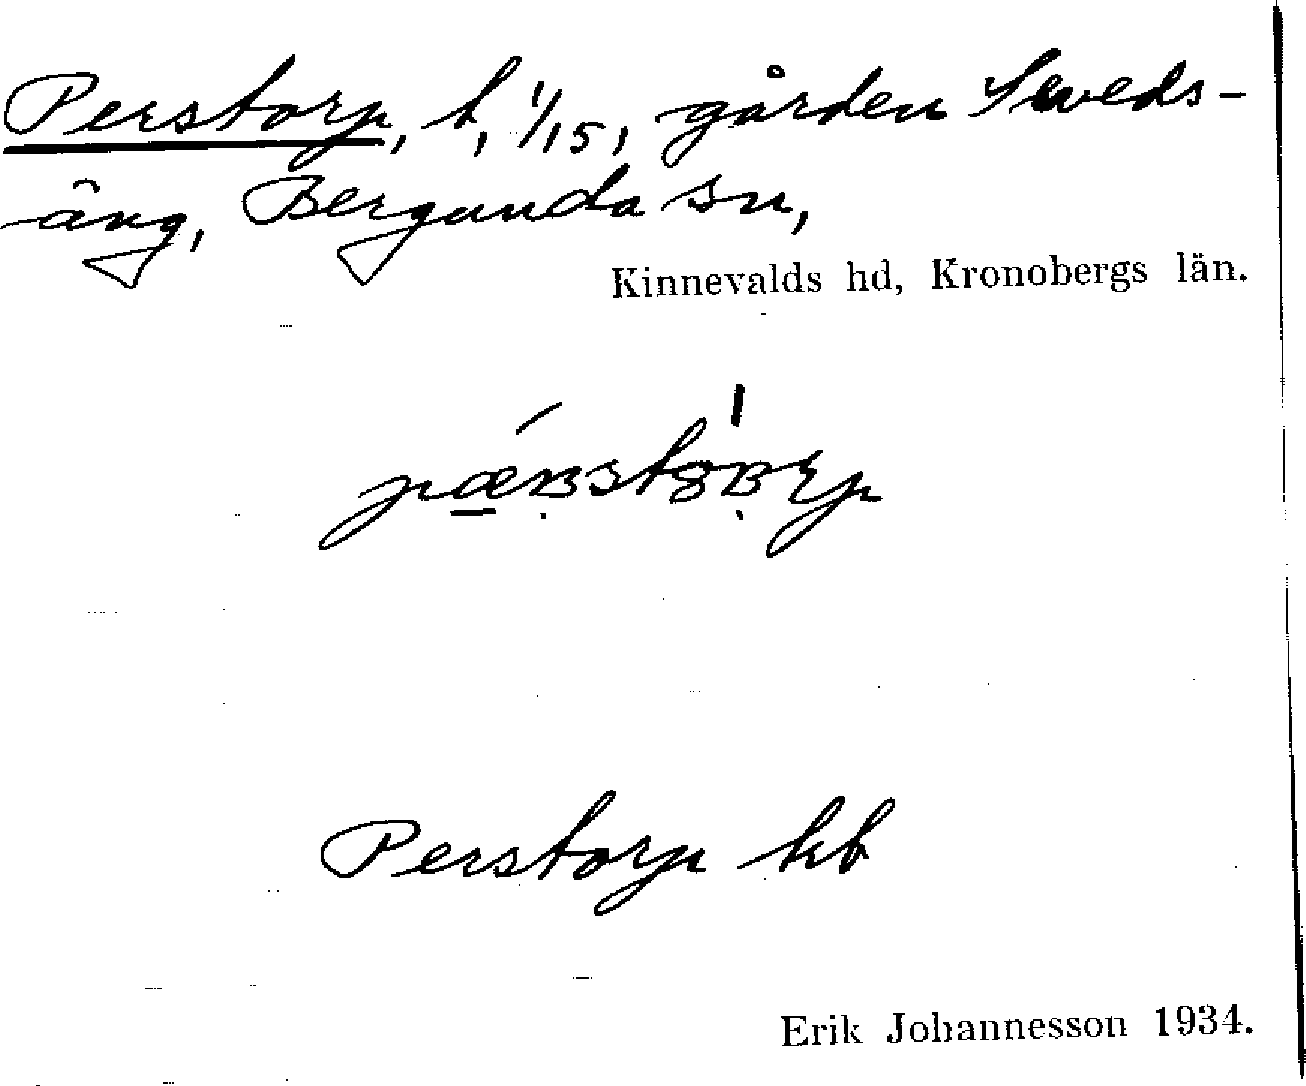 Perstorp, t, 1/15, gården Seveds-
äng, Bergunda sn,
Kinnevalds hd, Kronobergs län.
Perstorp hb
Erik Johannesson 1934.